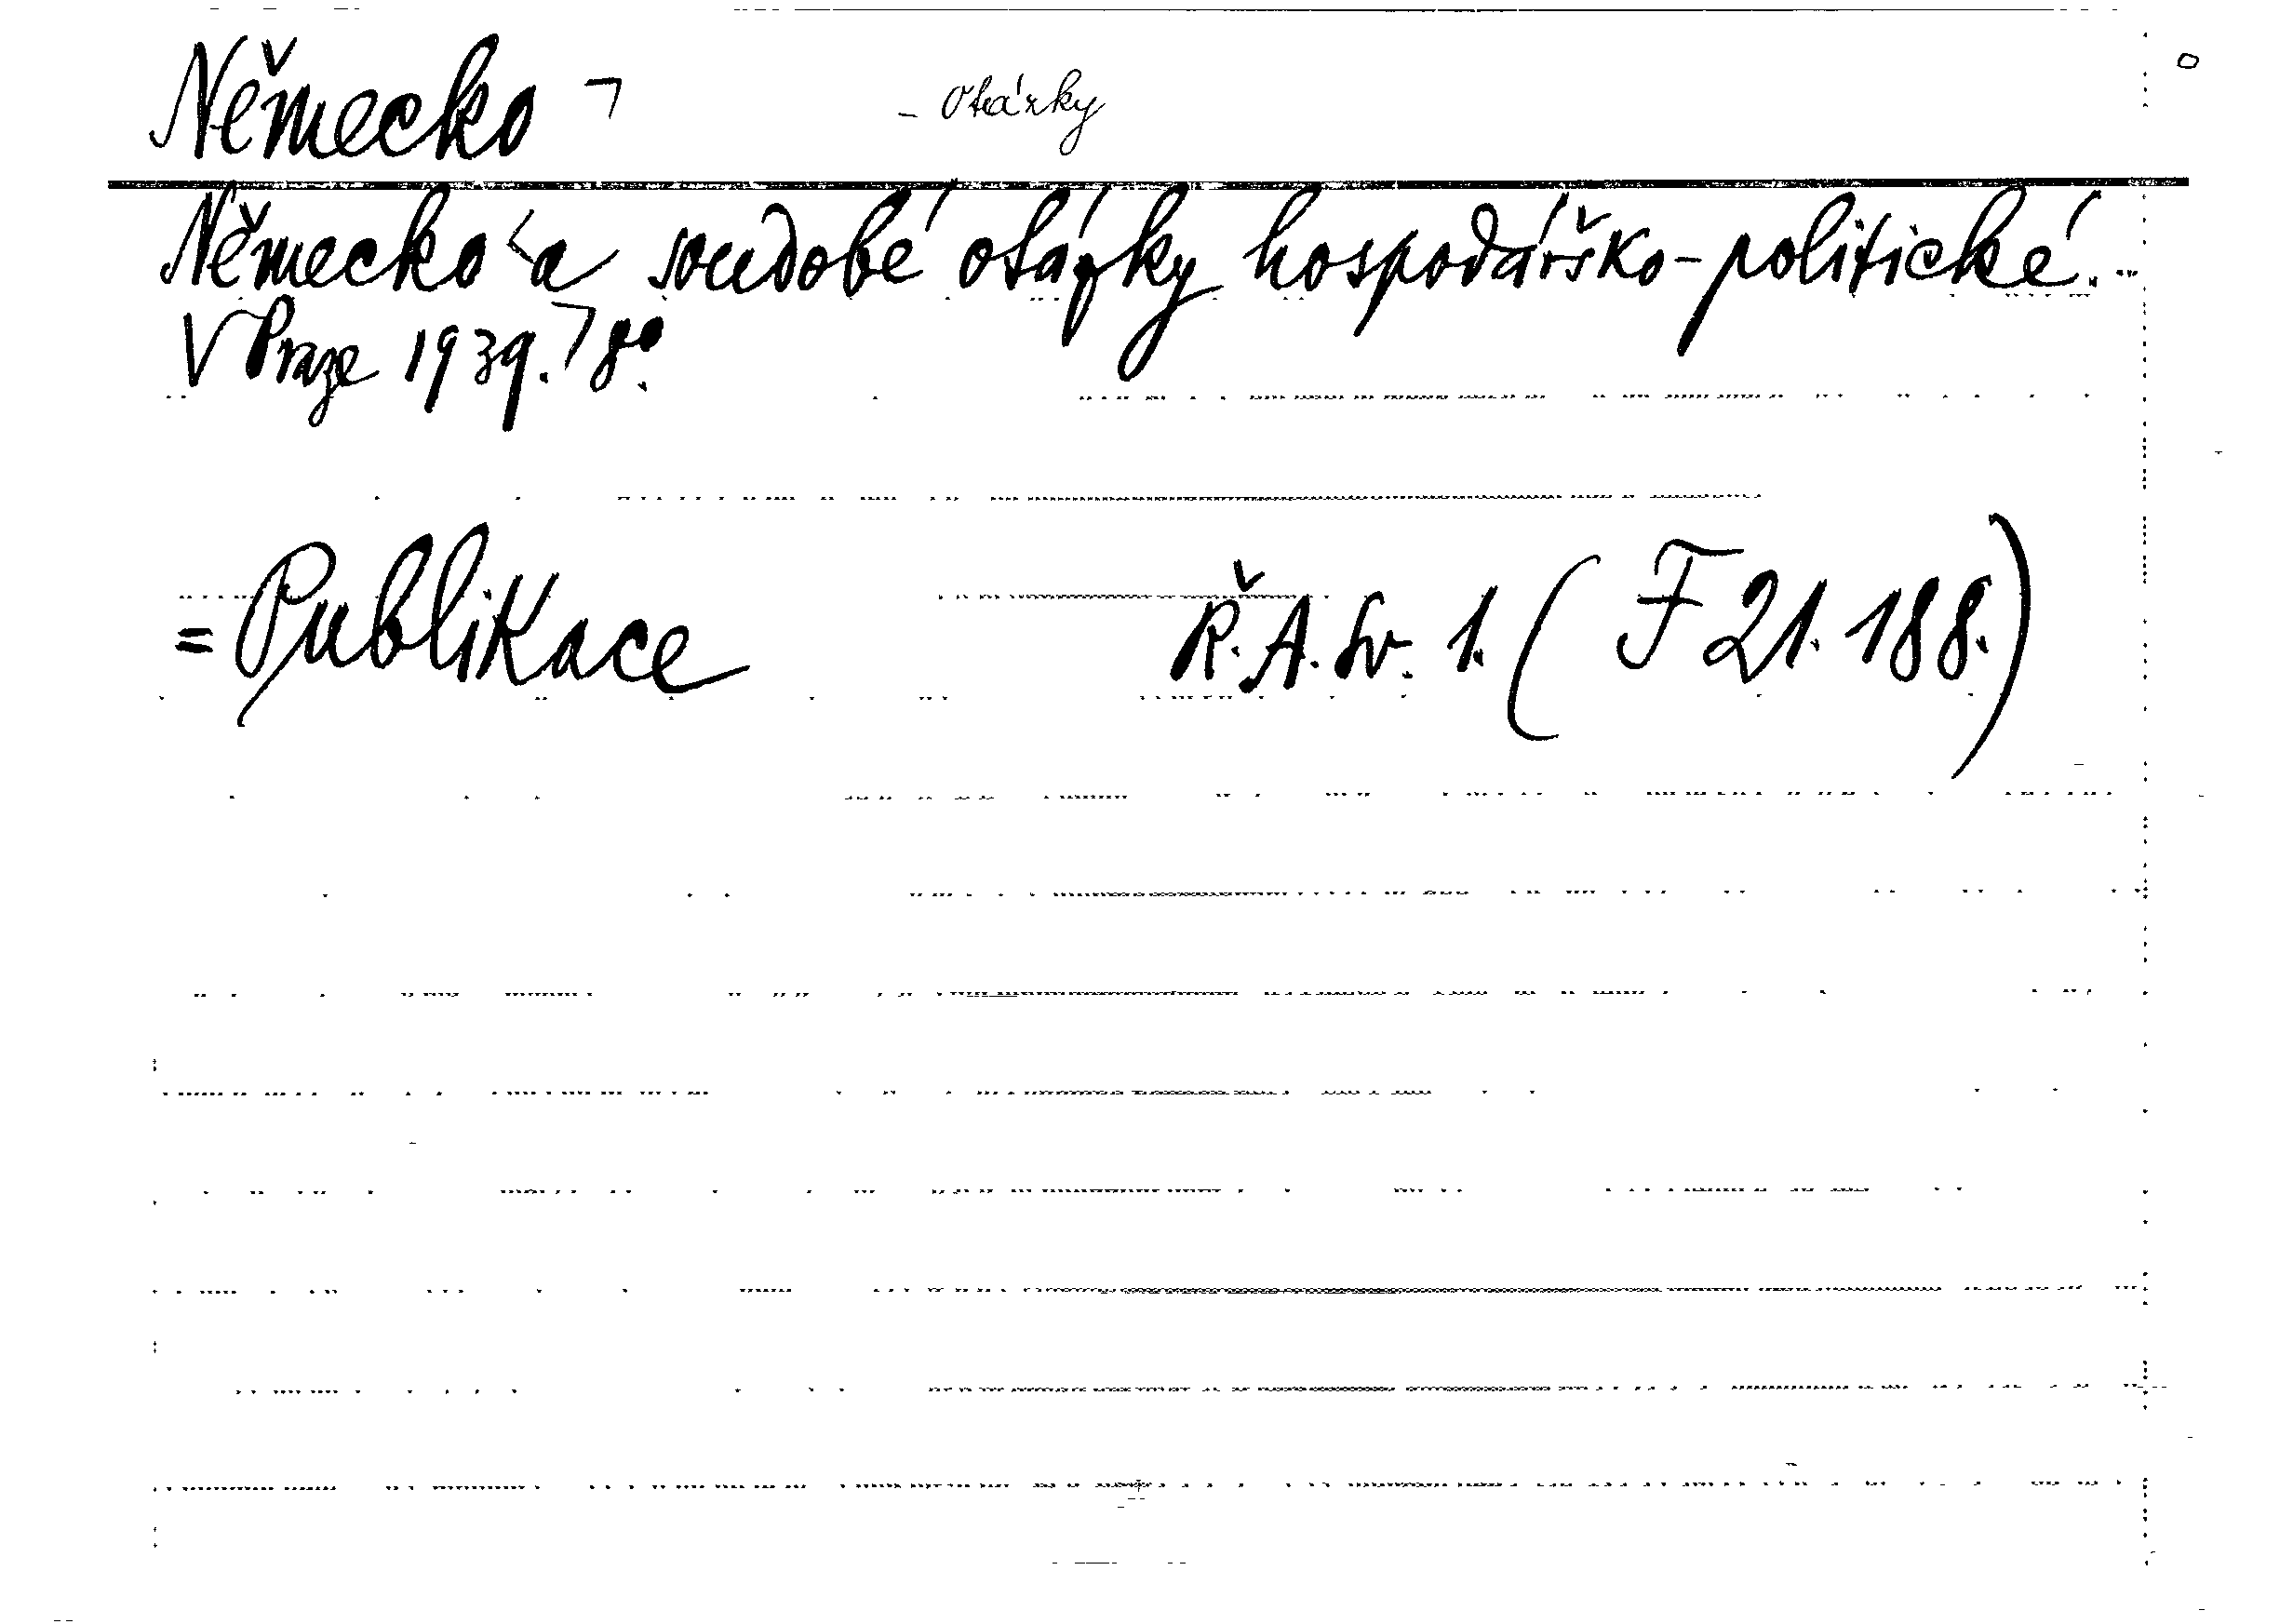 Německo ¬ - Otázky
Německo a soudobé otázky hospodářsko-politické.-
V Praze 1939. 8°.
= Publikace Ř. A. sv. 1. ( F 21.188.)